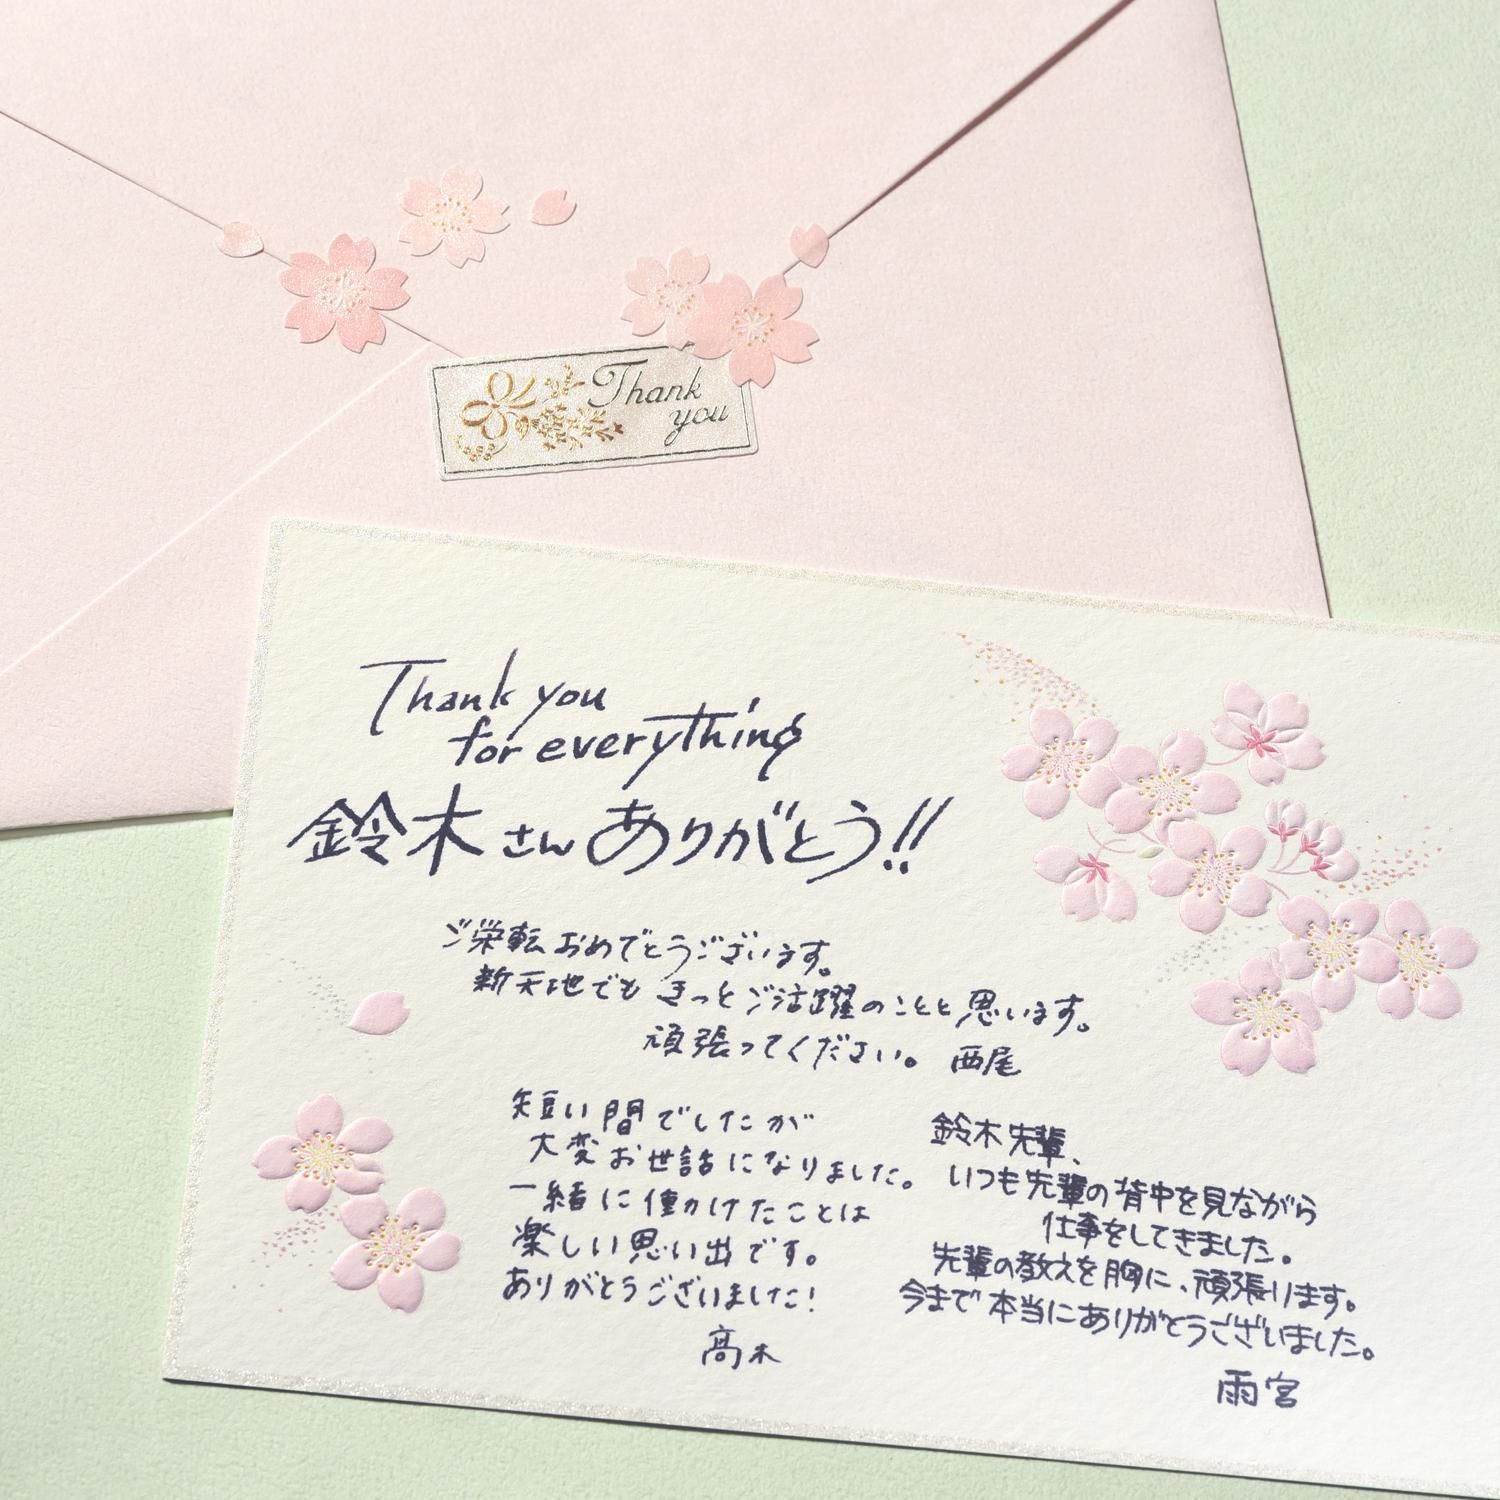 Thank
you
Thank you
for everything
鈴木さんありがとう!!
ご栄転おめでとうございます。
新天地でもきっとご活躍のことと思います。
頑張ってください。 西尾
短い間でしたが
大変お世話になりました。
一緒に働かけたことは
楽しい思い出です。
ありがとうございました!
高木
鈴木先輩、
いつも先輩の背中を見ながら
仕事をしてきました。
先輩の教えを胸に、頑張ります。
今まで本当にありがとうございました。
雨宮